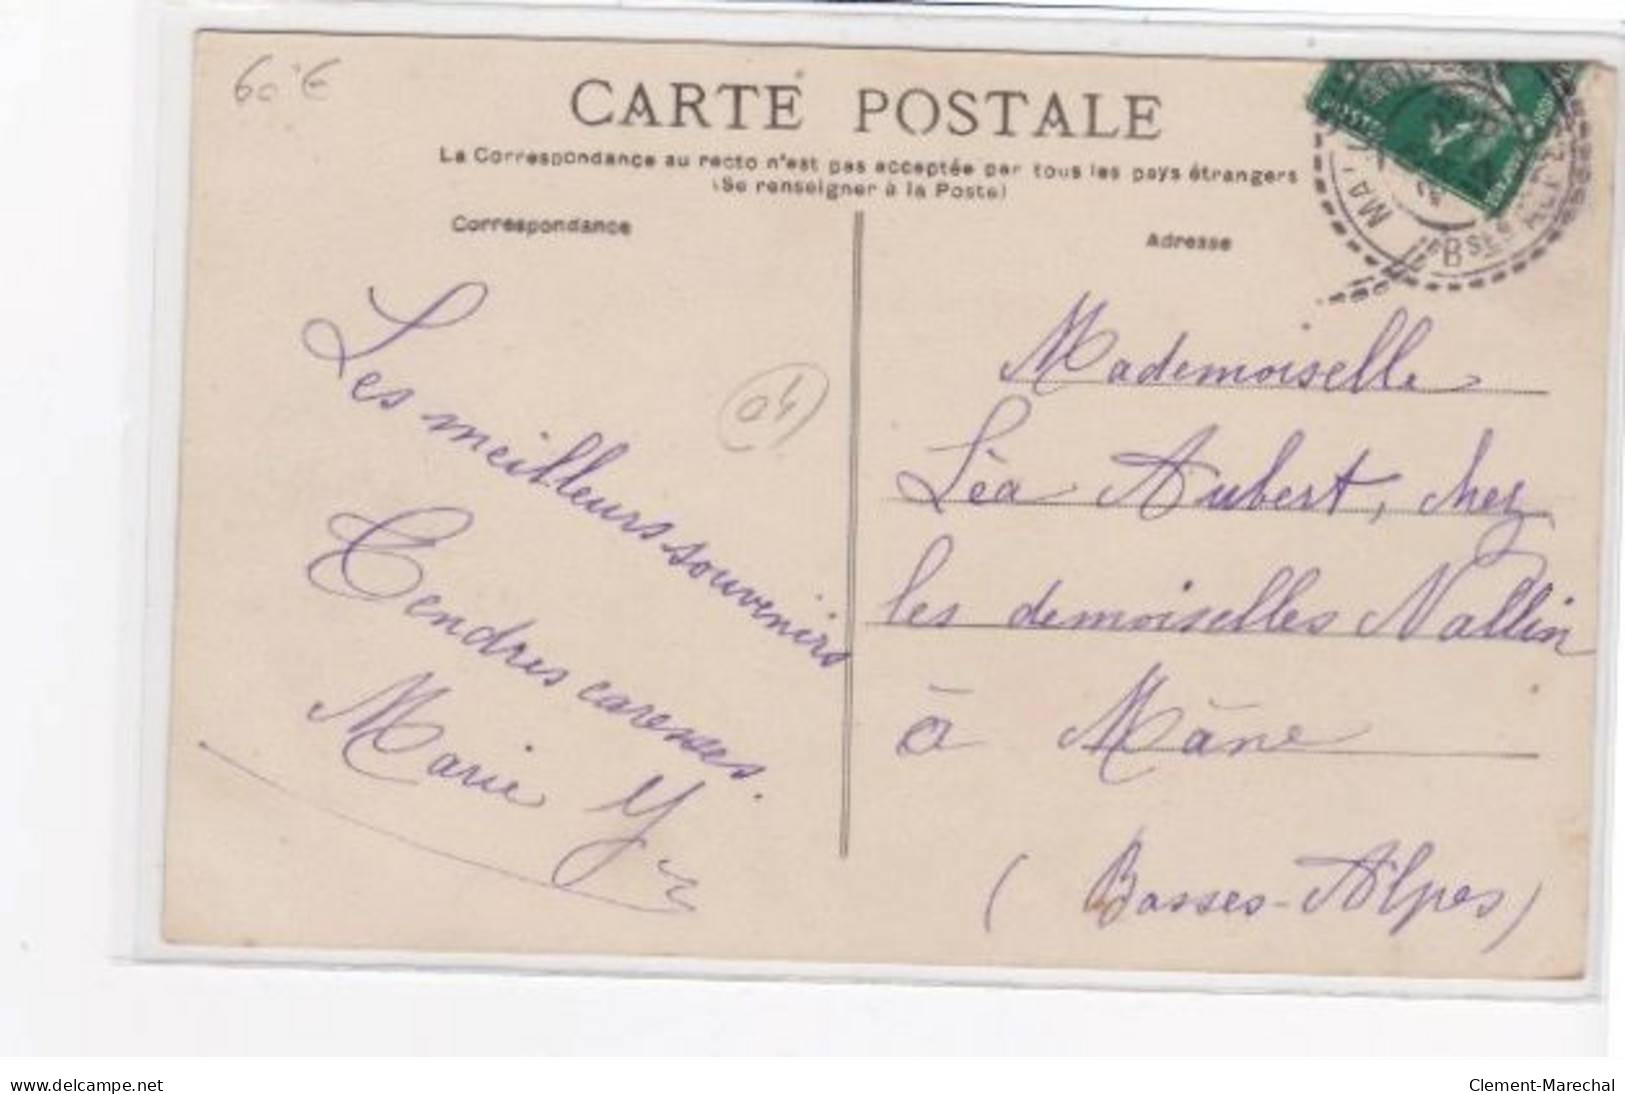 60 €
CARTE POSTALE
La Correspondance au recto n'est pas acceptée par tous les pays étrangers
(Se renseigner à la Poste)
Correspondance
Adresse
Les meilleurs souvenirs
Tendres caresses.
Marie Y
04
Mademoiselle
Léa Aubert, chez
les demoiselles Nallin
à Mâne
(Basses-Alpes)
www.delcampe.net
Clement-Marechal